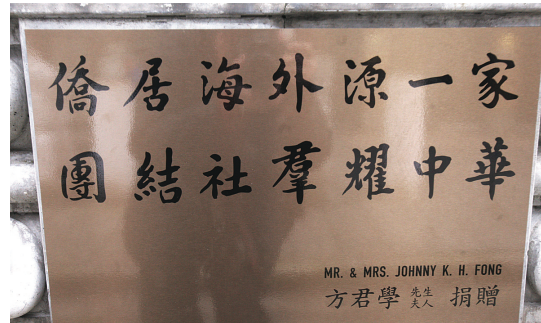 僑居海外源一家
團結社羣耀中華
MR. & MRS. JOHNNY K. H. FONG
方君學 先生 夫人 捐贈